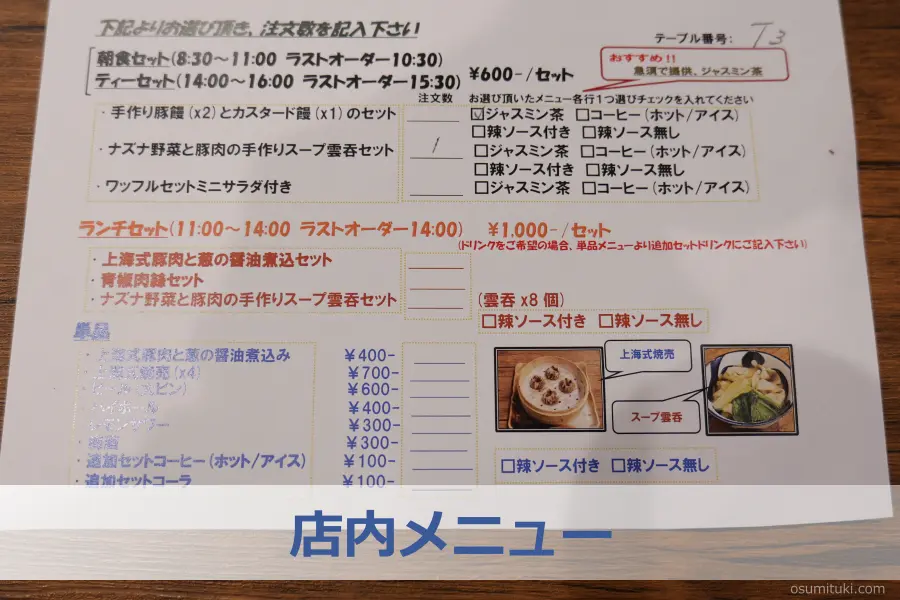 下記よりお選び頂き、注文数を記入下さい
テーブル番号: T3
朝食セット(8:30～11:00 ラストオーダー10:30)
ティーセット(14:00～16:00 ラストオーダー15:30)
¥600-/セット
おすすめ!!
急須で提供、ジャスミン茶
注文数 お選び頂いたメニュー各行1つ選びチェックを入れてください
・手作り豚饅(x2)とカスタード饅(x1)のセット ☑ジャスミン茶 □コーヒー(ホット/アイス)
□辣ソース付き □辣ソース無し
・ナズナ野菜と豚肉の手作りスープ雲呑セット / □ジャスミン茶 □コーヒー(ホット/アイス)
□辣ソース付き □辣ソース無し
・ワッフルセットミニサラダ付き □ジャスミン茶 □コーヒー(ホット/アイス)
ランチセット(11:00～14:00 ラストオーダー14:00) ¥1.000-/セット
(ドリンクをご希望の場合、単品メニューより追加セットドリンクにご記入下さい)
・上海式豚肉と葱の醤油煮込セット
・青椒肉絲セット
・ナズナ野菜と豚肉の手作りスープ雲呑セット (雲呑x8個)
□辣ソース付き □辣ソース無し
単品
・上海式豚肉と葱の醤油煮込み ¥400-
・上海式焼売(x4) ¥700-
¥600-
・ハイボール ¥400-
¥300-
・梅酒 ¥300-
・追加セットコーヒー(ホット/アイス) ¥100-
・追加セットコーラ ¥100-
上海式焼売
スープ雲呑
□辣ソース付き □辣ソース無し
店内メニュー
osumituki.com